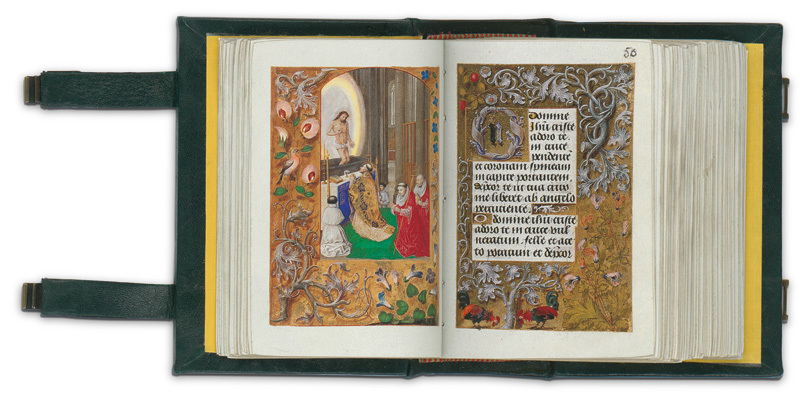 50
O Domine
Ihu criste
adoro te
in cruce
pendente
et coronam spineam
in capite portantem.
depcor te ut tua crux
me liberet ab angelo
percutiente.
O domine ihu criste
adoro te in cruce vul
neratum. felle et ace
to potatum et depcor